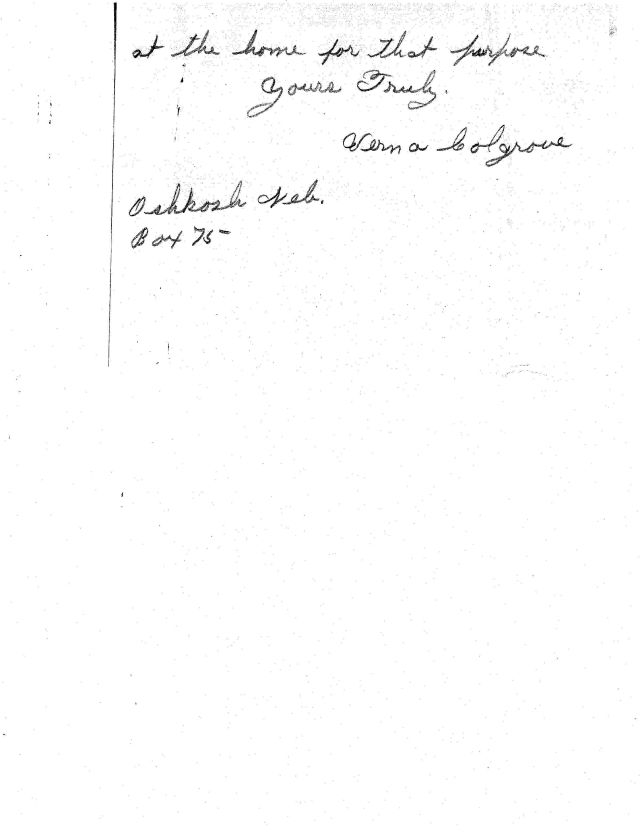 at the home for that purpose
Yours Truly.
Verna Colgrove
Oshkosh Neb.
Box 75